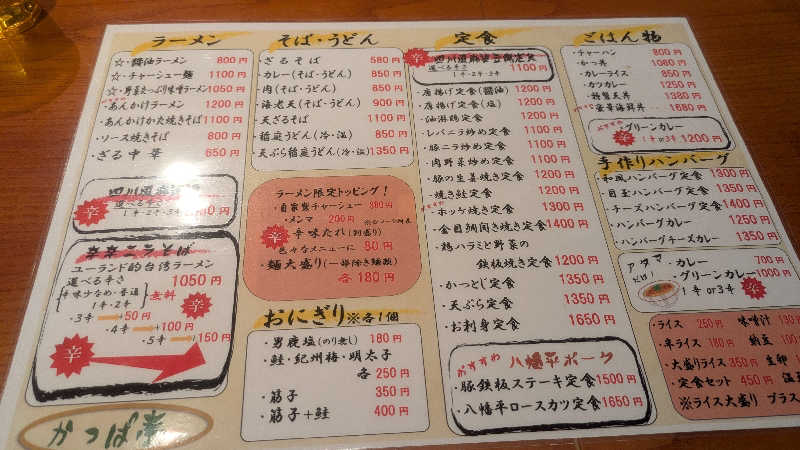 ラーメン
☆・醤油ラーメン 800円
☆・チャーシュー麺 1100円
☆・野菜たっぷり味噌ラーメン 1050円
・あんかけラーメン 1200円
・あんかけかた焼きそば 1100円
・ソース焼きそば 800円
・ざる中華 650円
辛
1辛・2辛・3辛
辛辛ニラそば
ユーランド的台湾ラーメン
選べる辛さ 1050円
辛味少なめ・普通
1辛・2辛
無料
辛
・3辛 +50円
・4辛 +100円
・5辛 +150円
辛
かっぱ
そば・うどん
・ざるそば 580円
・カレー(そば・うどん) 850円
・肉(そば・うどん) 850円
・海老天(そば・うどん) 900円
・天ざるそば 1100円
・稲庭うどん(冷・温) 850円
・天ぷら稲庭うどん(冷・温) 1350円
ラーメン限定トッピング!
・自家製チャーシュー 380円
・メンマ 200円
辛
・辛味たれ(別盛り)
色々なメニューに 80円
・麺大盛り(一部除き麺類)
各180円
おにぎり ※各1個
・男鹿塩(のり無し) 180円
・鮭・紀州梅・明太子
各250円
・筋子 350円
・筋子+鮭 400円
定食
辛
四川風麻婆豆腐定食
選べる辛さ
1辛・2辛・3辛
1100円
・唐揚げ定食(醤油) 1200円
・唐揚げ定食(塩) 1200円
・油淋鶏定食 1200円
・レバニラ炒め定食 1100円
・豚ニラ炒め定食 1100円
・肉野菜炒め定食 1100円
・豚の生姜焼き定食 1200円
・焼き鮭定食 1200円
おすすめ
・ホッケ焼き定食 1300円
・金目鯛開き焼き定食 1400円
・鶏ハラミと野菜の
鉄板焼き定食 1200円
・かつとじ定食 1350円
・天ぷら定食 1350円
・お刺身定食 1650円
おすすめ
八幡平ポーク
・豚鉄板ステーキ定食 1500円
・八幡平ロースカツ定食 1650円
ごはん物
・チャーハン 800円
・かつ丼 1080円
・カレーライス 850円
・カツカレー 1250円
・特製天丼 1380円
・豪華海鮮丼 1680円
おすすめ
・グリーンカレー
辛
1辛or3辛 1200円
手作りハンバーグ
・和風ハンバーグ定食 1300円
・目玉ハンバーグ定食 1350円
・チーズハンバーグ定食 1400円
・ハンバーグカレー 1250円
・ハンバーグチーズカレー 1350円
アタマだけ!
・カレー 700円
・グリーンカレー 1000円
1辛or3辛
辛
・ライス 250円
・半ライス 150円
・大盛りライス 350円
・定食セット 450円
※ライス大盛り プラス
味噌汁 130
納豆 100
生卵
温玉